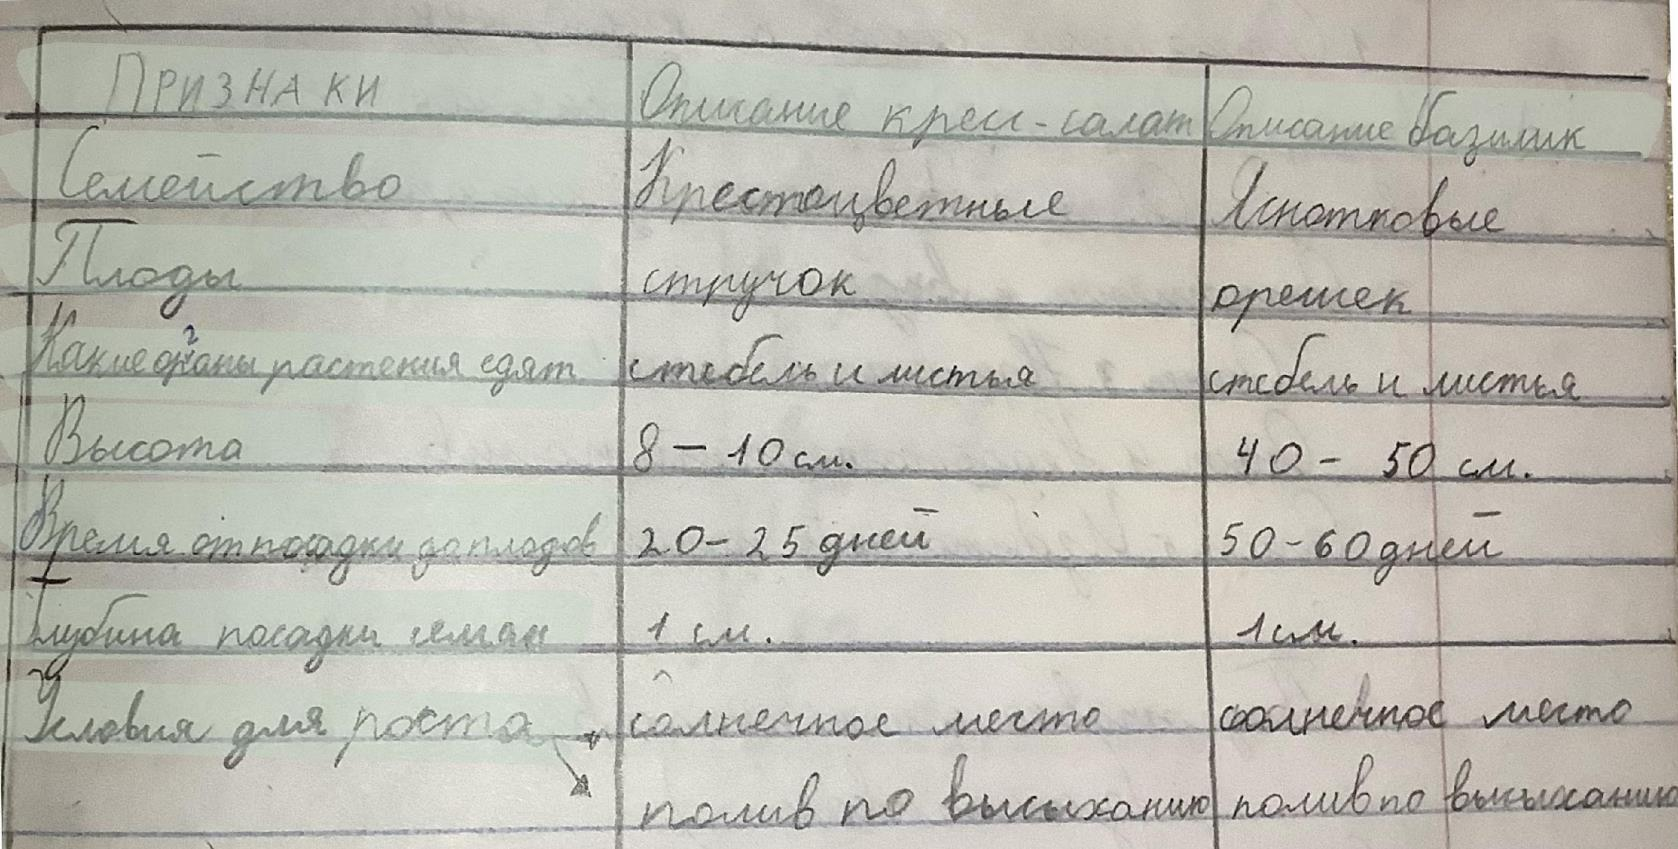 ПРИЗНАКИ Описание кресс-салат Описание базилик
Семейство Крестоцветные Яснотковые
Плоды стручок орешек
Какие органы растения едят стебель и листья стебель и листья
Высота 8 – 10 см. 40 – 50 см.
Время от посадки до плодов 20 – 25 дней 50 – 60 дней
Глубина посадки семян 1 см. 1 см.
Условия для роста солнечное место солнечное место
полив по высыханию полив по высыханию